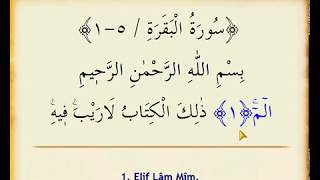 ﴿سُورَةُ الْبَقَرَةِ / ٥-١﴾
بِسْمِ اللهِ الرَّحْمٰنِ الرَّحٖيمِ
الٓمٓۚ ﴿١﴾ ذٰلِكَ الْكِتَابُ لَارَيْبَۚۛ فٖيهِۚۛ
1. Elif Lâm Mîm.